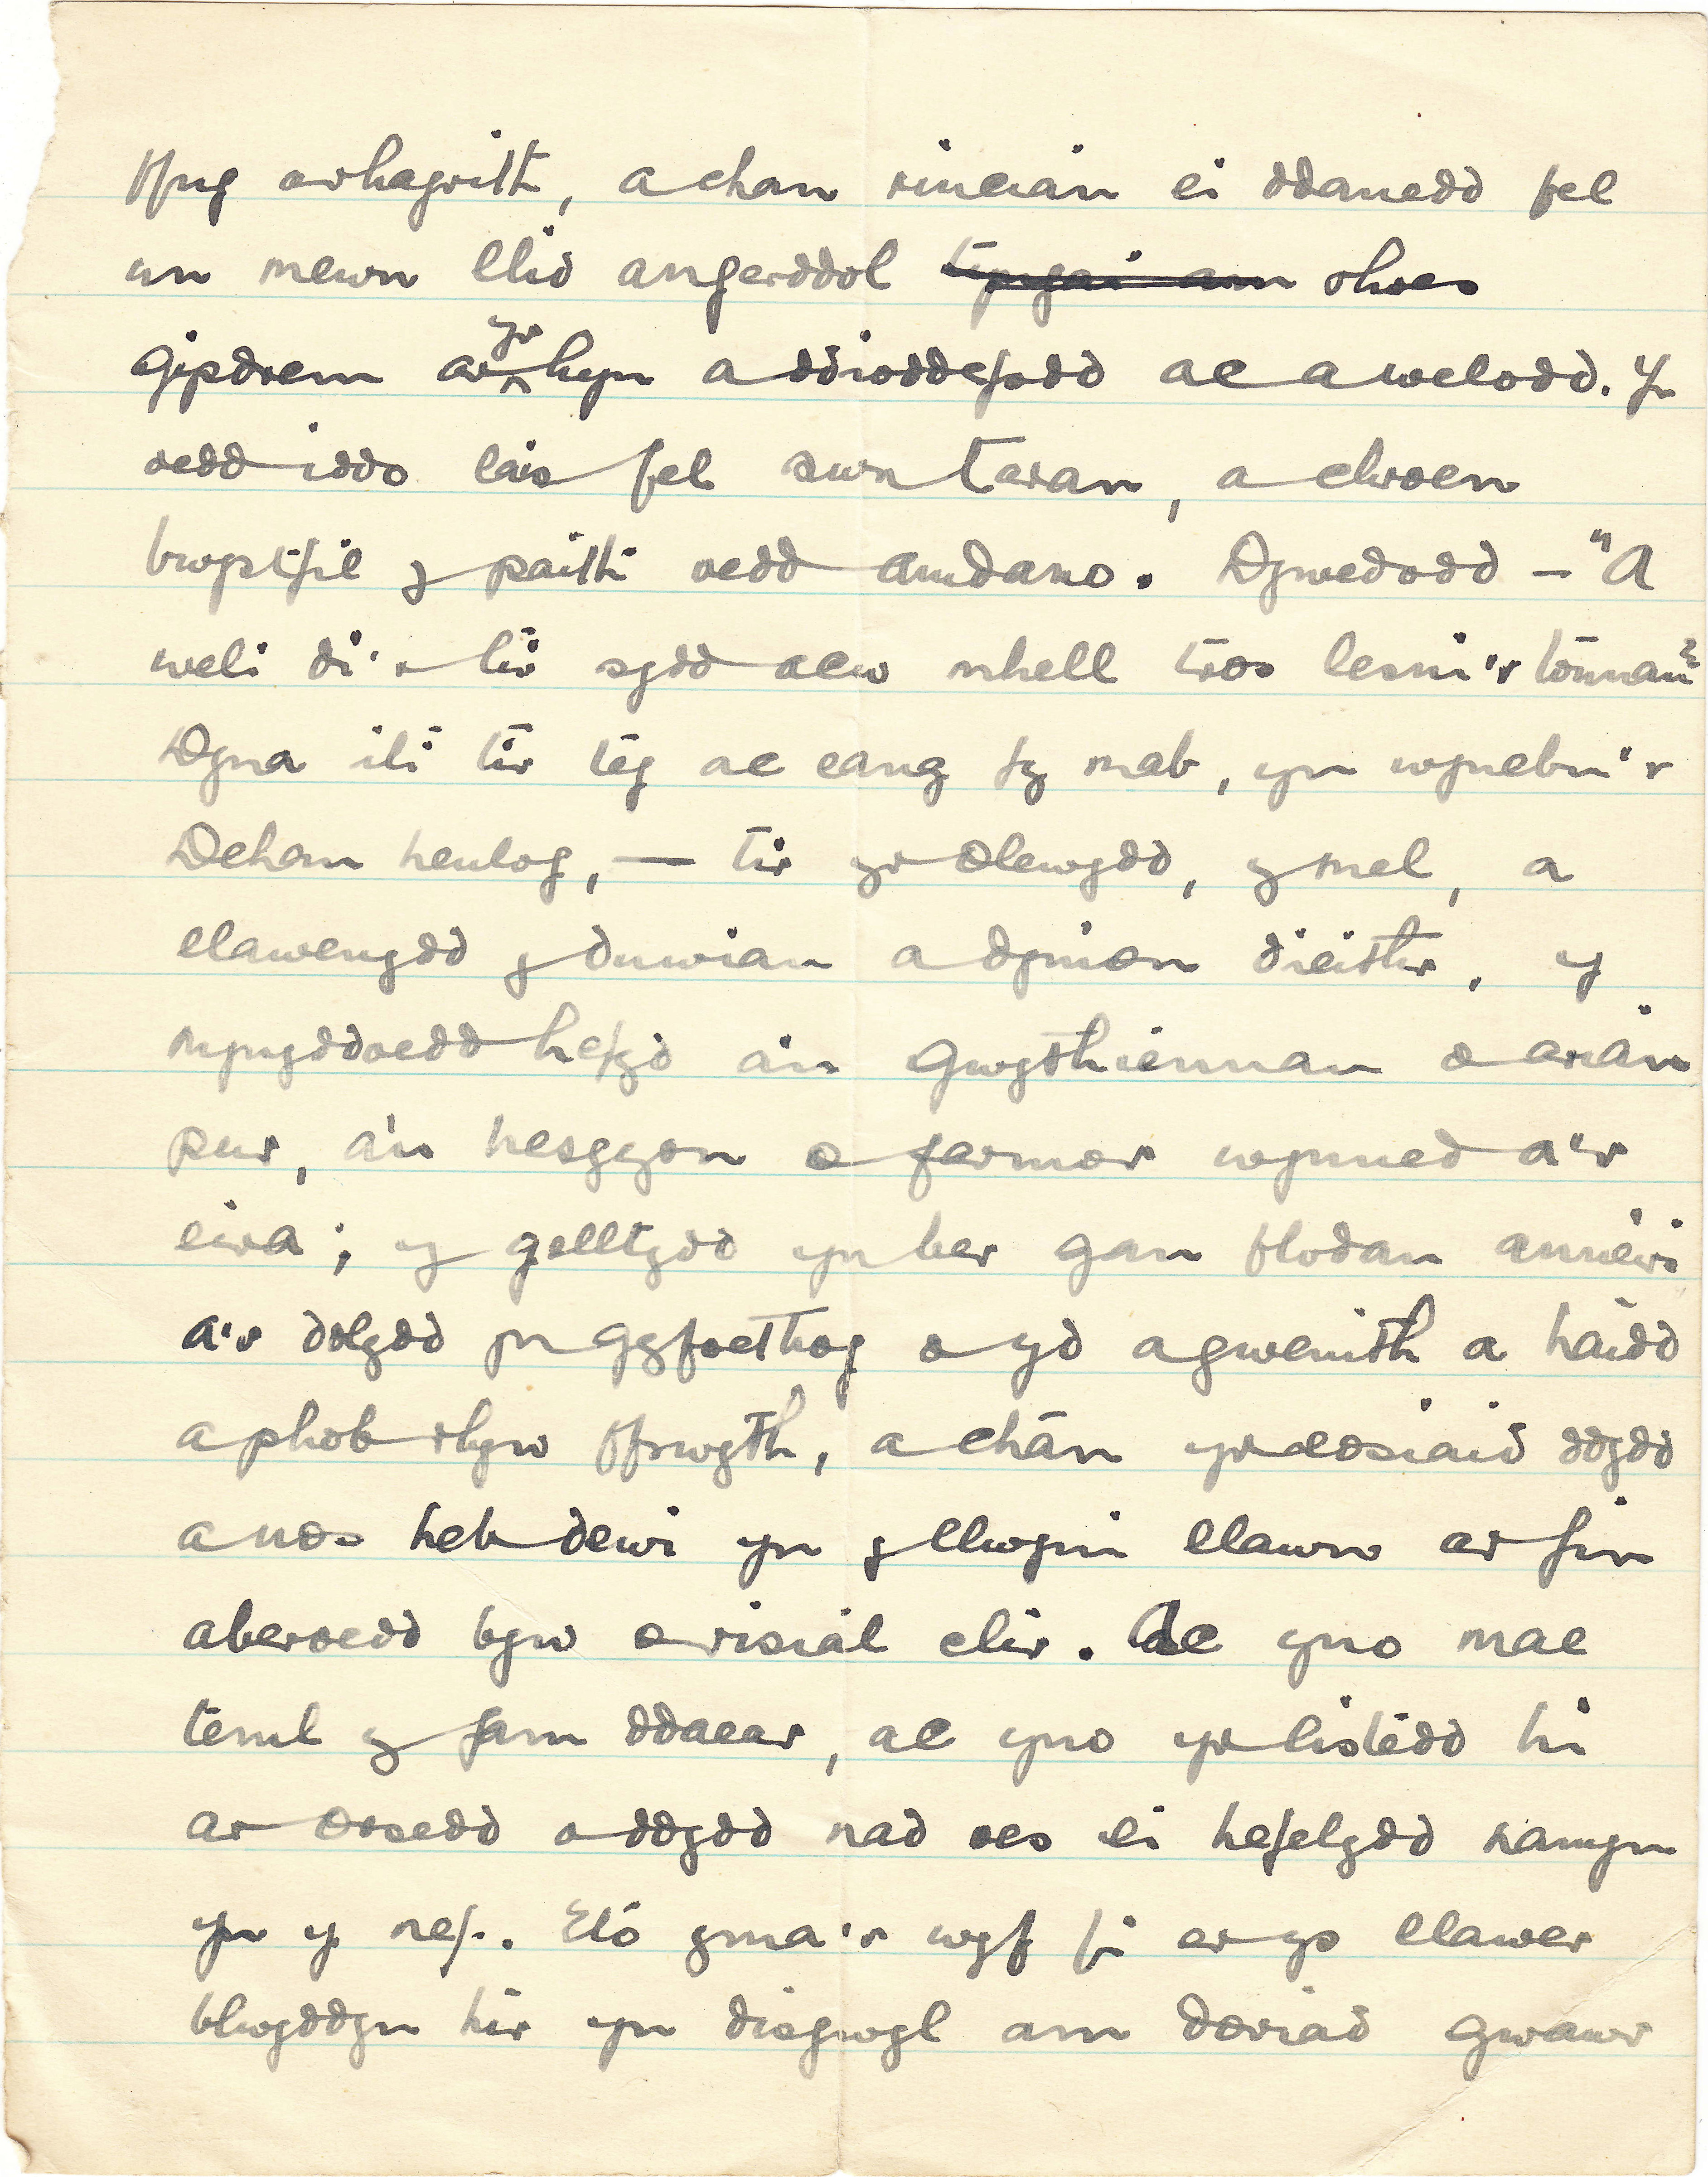 ffug a rhagrith, a chan rincian ei ddanedd fel
un mewn llid angerddol rhoes
gipdrem ar yr hyn a ddioddefodd ac a welodd. Yr
oedd iddo lais fel swn taran, a chroen
bwystfil y paith oedd amdano. Dywedodd — "A
weli di'r tir sydd acw mhell tros lesni'r tonnau?
Dyna iti tir teg ac eang fy mab, yn wynebu'r
Deham heulog, — tir yr olewydd, y mel, a
llawenydd y duwiau a dynion dieithr, y
mynyddoedd hefyd a'u gwythiennau o arian
pur, a'u hesgyrn o farmor wynned a'r
eira; y gelltydd yn ber gan flodau
a'r dolydd yn gyfoethog o yd a gwenith a haidd
a phob rhyw ffrwyth, a chân yr eosiaid ddydd
a nos heb dewi yn y llwyni llawn ar fin
aberoedd byw o risial clir. Ac yno mae
teml y fam ddaear, ac yno yr eistedd hi
ar orsedd o ddydd nad oes ei hefelydd namyn
yn y nef. Eto yma'r wyf fi er ys llawer
blwyddyn hir yn disgwyl am doriad gwawr